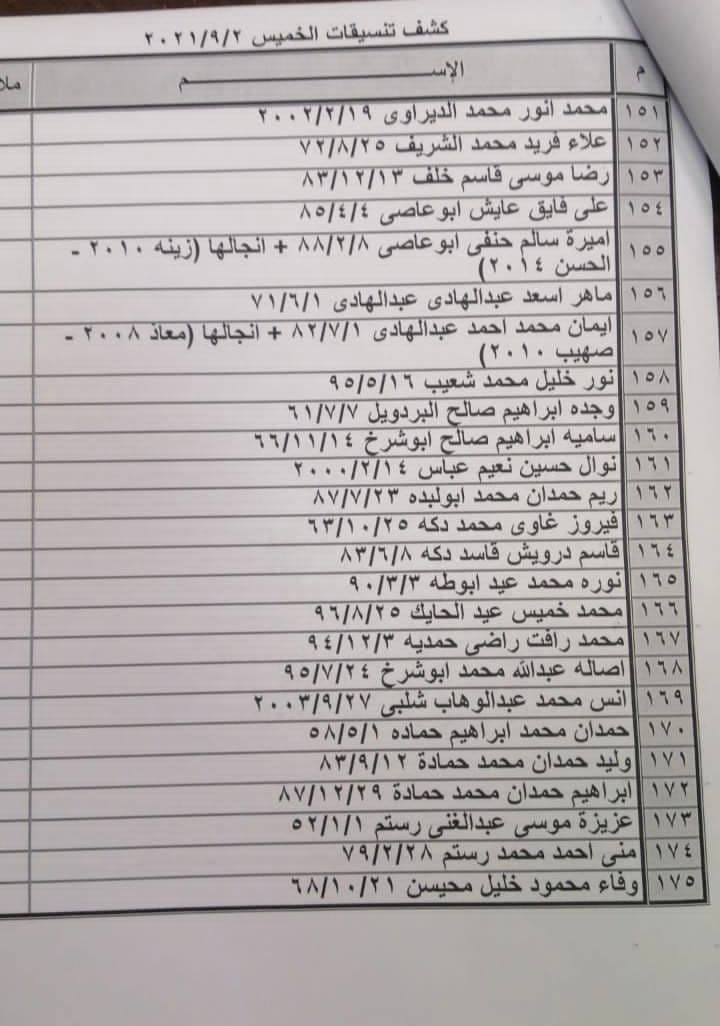 كشف تنسيقات الخميس ٢٠٢١/٩/٢
م الإســـــــــم ملا
١٥١ محمد انور محمد الديراوى ٢٠٠٢/٢/١٩
١٥٢ علاء فريد محمد الشريف ٧٢/٨/٢٥
١٥٣ رضا موسى قاسم خلف ٨٣/١٢/١٣
١٥٤ على فايق عايش ابوعاصى ٨٥/٤/٤
١٥٥ اميرة سالم حنفى ابوعاصى ٨٨/٢/٨ + انجالها (زينه ٢٠١٠ -
الحسن ٢٠١٤)
١٥٦ ماهر اسعد عبدالهادى عبدالهادى ٧١/٦/١
١٥٧ ايمان محمد احمد عبدالهادى ٨٢/٧/١ + انجالها (معاذ ٢٠٠٨ -
صهيب ٢٠١٠)
١٥٨ نور خليل محمد شعيب ٩٥/٥/١٦
١٥٩ وجده ابراهيم صالح البردويل ٦١/٧/٧
١٦٠ ساميه ابراهيم صالح ابوشرخ ٦٦/١١/١٤
١٦١ نوال حسين نعيم عباس ٢٠٠٠/٢/١٤
١٦٢ ريم حمدان محمد ابولبده ٨٧/٧/٢٣
١٦٣ فيروز غاوى محمد دكه ٦٣/١٠/٢٥
١٦٤ قاسم درويش قاسد دكه ٨٣/٦/٨
١٦٥ نوره محمد عيد ابوطه ٩٠/٣/٣
١٦٦ محمد خميس عيد الحايك ٩٦/٨/٢٥
١٦٧ محمد رافت راضى حمديه ٩٤/١٢/٣
١٦٨ اصاله عبدالله محمد ابوشرخ ٩٥/٧/٢٤
١٦٩ انس محمد عبدالوهاب شلبى ٢٠٠٣/٩/٢٧
١٧٠ حمدان محمد ابراهيم حماده ٥٨/٥/١
١٧١ وليد حمدان محمد حمادة ٨٣/٩/١٢
١٧٢ ابراهيم حمدان محمد حمادة ٨٧/١٢/٢٩
١٧٣ عزيزة موسى عبدالغنى رستم ٥٢/١/١
١٧٤ منى احمد محمد رستم ٧٩/٢/٢٨
١٧٥ وفاء محمود خليل محيسن ٦٨/١٠/٢١